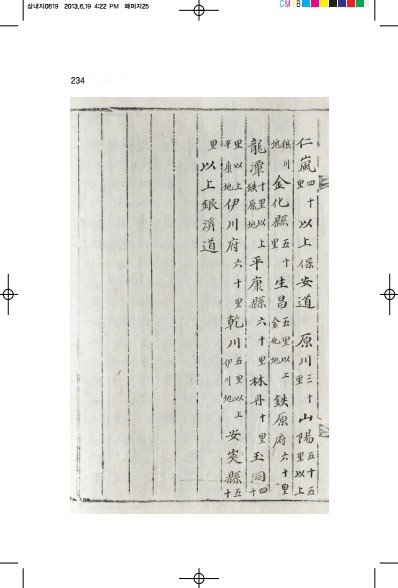 삼내지0619 2013.6.19 4:22 PM 페이지25
CM B
234
仁嵐四十里以上保安道 原川三十里山陽五十五里以上
狼川地金化縣五十里生昌五里以上金化地鉄原府六十里
龍潭十里以上鉄原地平康縣六十里林丹十里玉洞四十
里以上平康地伊川府六十里乾川五里以上伊川地安峽縣五十
里以上銀溪道